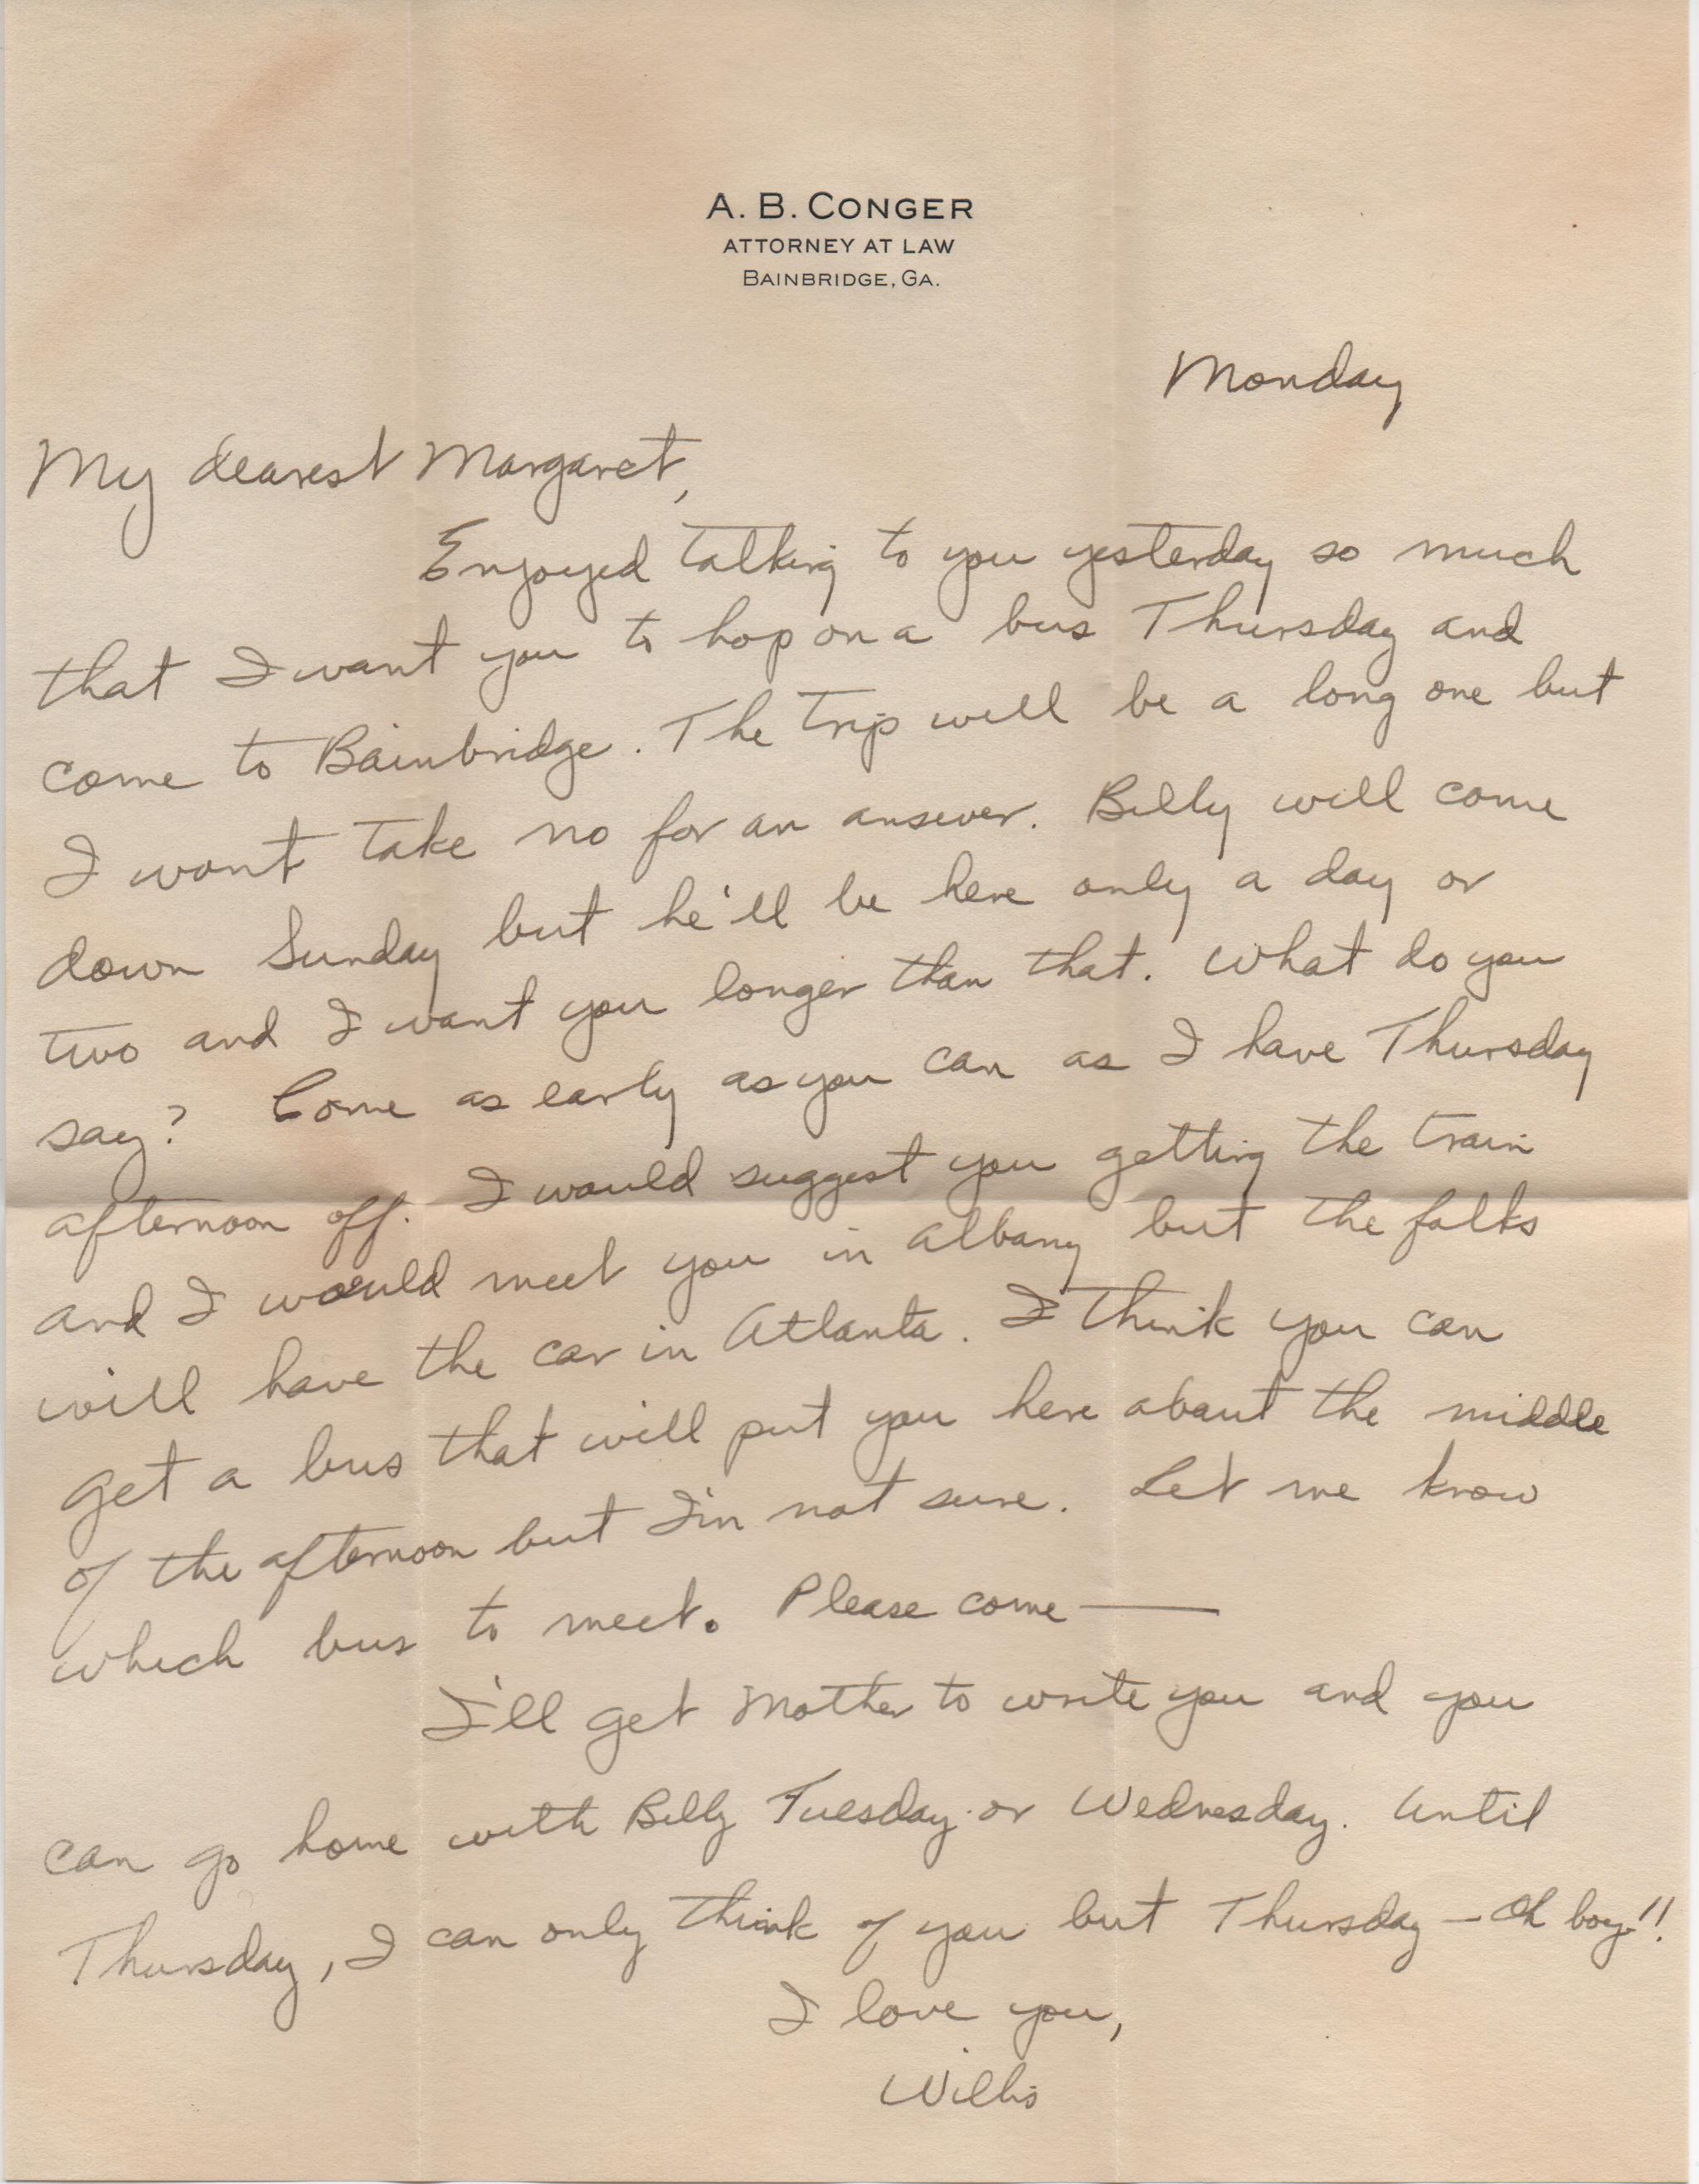 A. B. CONGER
ATTORNEY AT LAW
BAINBRIDGE, GA.
Monday
My dearest Margaret,
Enjoyed talking to you yesterday so much
that I want you to hop on a bus Thursday and
come to Bainbridge. The trip will be a long one but
I wont take no for an answer. Billy will come
down Sunday but he'll be here only a day or
two and I want you longer than that. What do you
say? Come as early as you can as I have Thursday
afternoon off. I would suggest you getting the train
and I would meet you in Albany but the folks
will have the car in Atlanta. I think you can
get a bus that will put you here about the middle
of the afternoon but I'm not sure. Let me know
which bus to meet. Please come —
I'll get Mother to write you and you
can go home with Billy Tuesday or Wednesday. Until
Thursday, I can only think of you but Thursday — Oh boy!!
I love you,
Willis